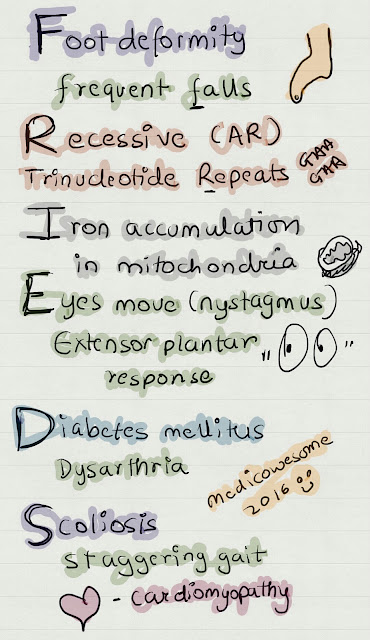 Foot deformity
frequent falls
Recessive (AR)
Trinucleotide Repeats GAA
GAA
Iron accumulation
in mitochondria
Eyes move (nystagmus)
Extensor plantar
response
Diabetes mellitus
Dysarthria
medicowesome
2016
Scoliosis
staggering gait
- cardiomyopathy